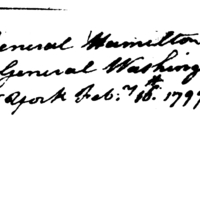 General Hamilton
General Washing
York Feb.y 16th 1799